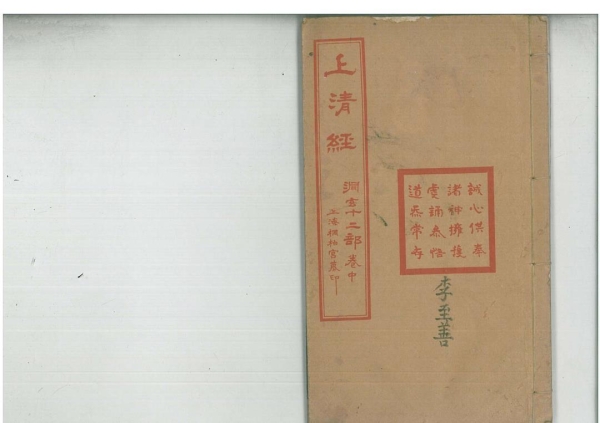 上清經
洞玄十二部卷中
上海桐柏宮募印
誠心供奉
諸神擁護
虔誦參悟
道炁常存
李至善